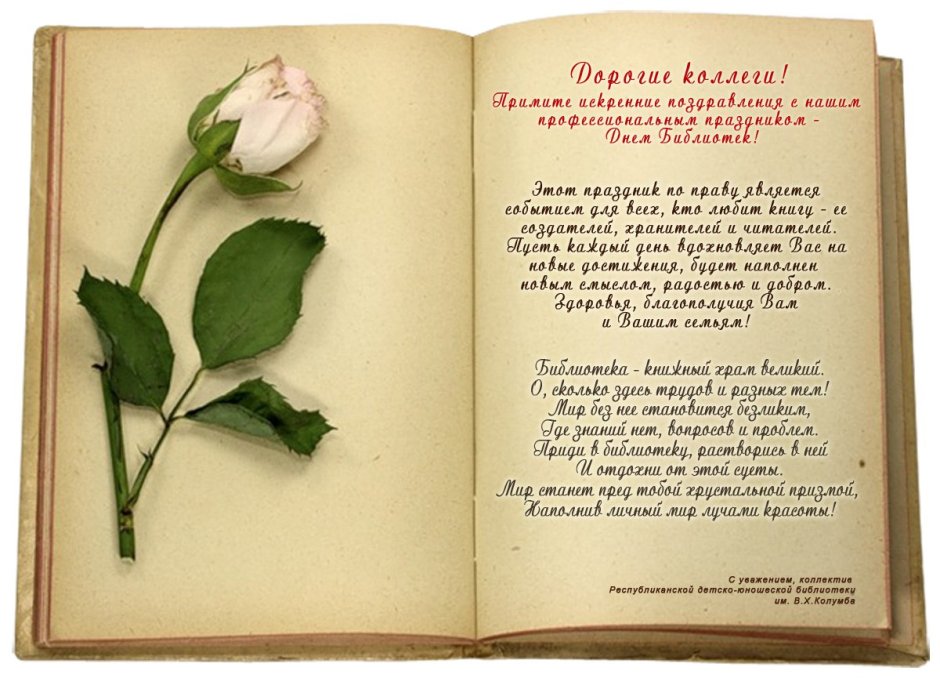 Дорогие коллеги!
Примите искренние поздравления с нашим
профессиональным праздником -
Днем Библиотек!
Этот праздник по праву является
событием для всех, кто любит книгу - ее
создателей, хранителей и читателей.
Пусть каждый день вдохновляет Вас на
новые достижения, будет наполнен
новым смыслом, радостью и добром.
Здоровья, благополучия Вам
и Вашим семьям!
Библиотека - книжный храм великий.
О, сколько здесь трудов и разных тем!
Мир без нее становится безликим,
Где знаний нет, вопросов и проблем.
Приди в библиотеку, растворись в ней
И отдохни от этой суеты.
Мир станет пред тобой хрустальной призмой,
Наполнив личный мир лучами красоты!
С уважением, коллектив
Республиканской детско-юношеской библиотеки
им. В.Х.Колумба